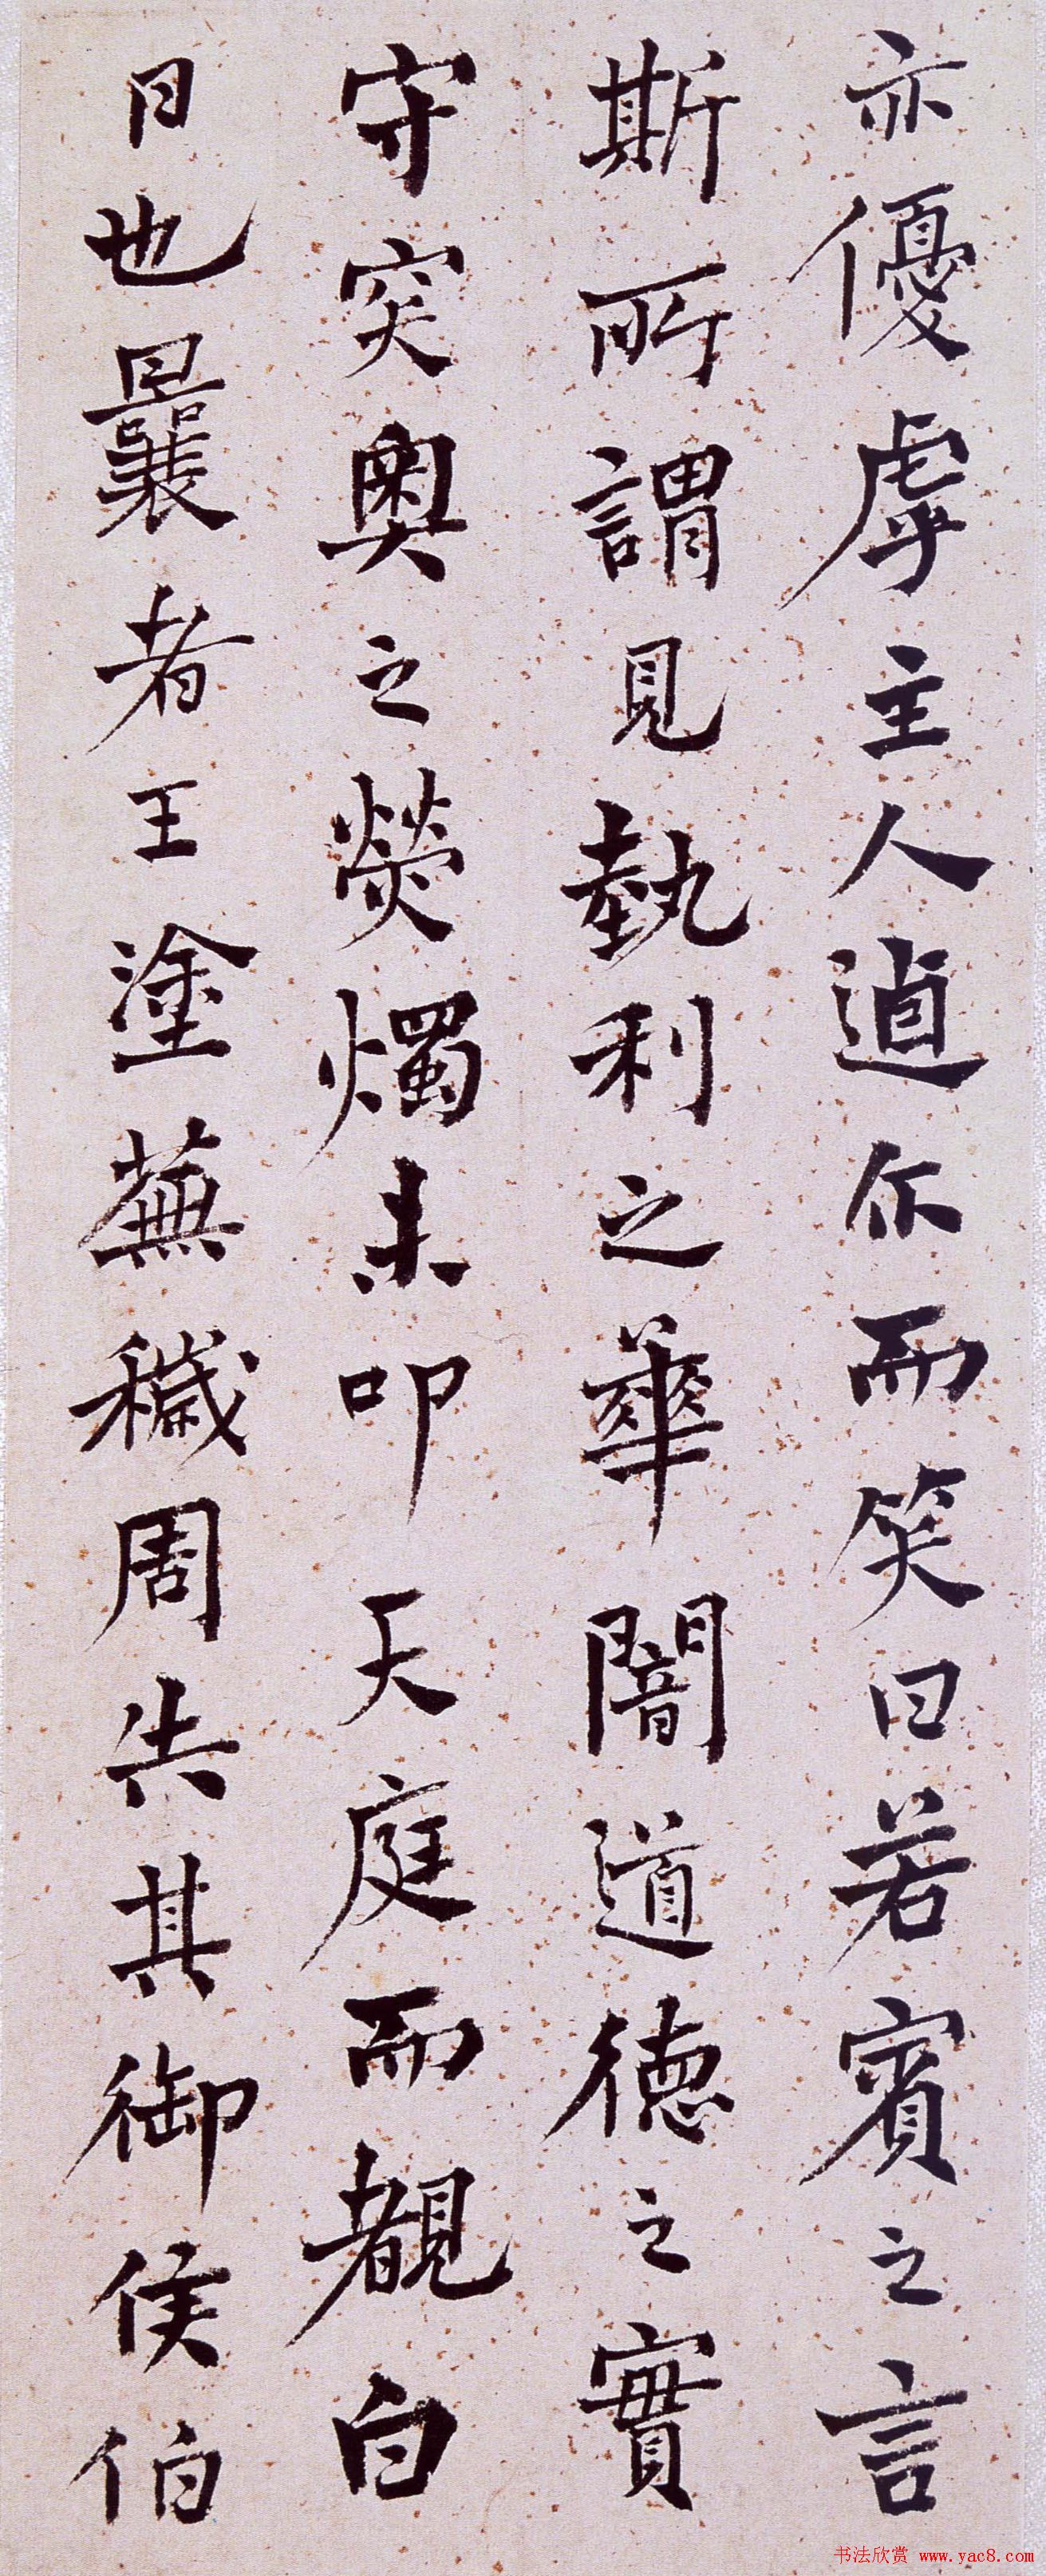 亦優虖主人逌尒而笑曰若賔之言
斯所謂見埶利之華闇道德之實
守突奧之熒燭未卬天庭而覩白
日也曩者王塗蕪穢周失其御侯伯
书法欣赏 www.yac8.com